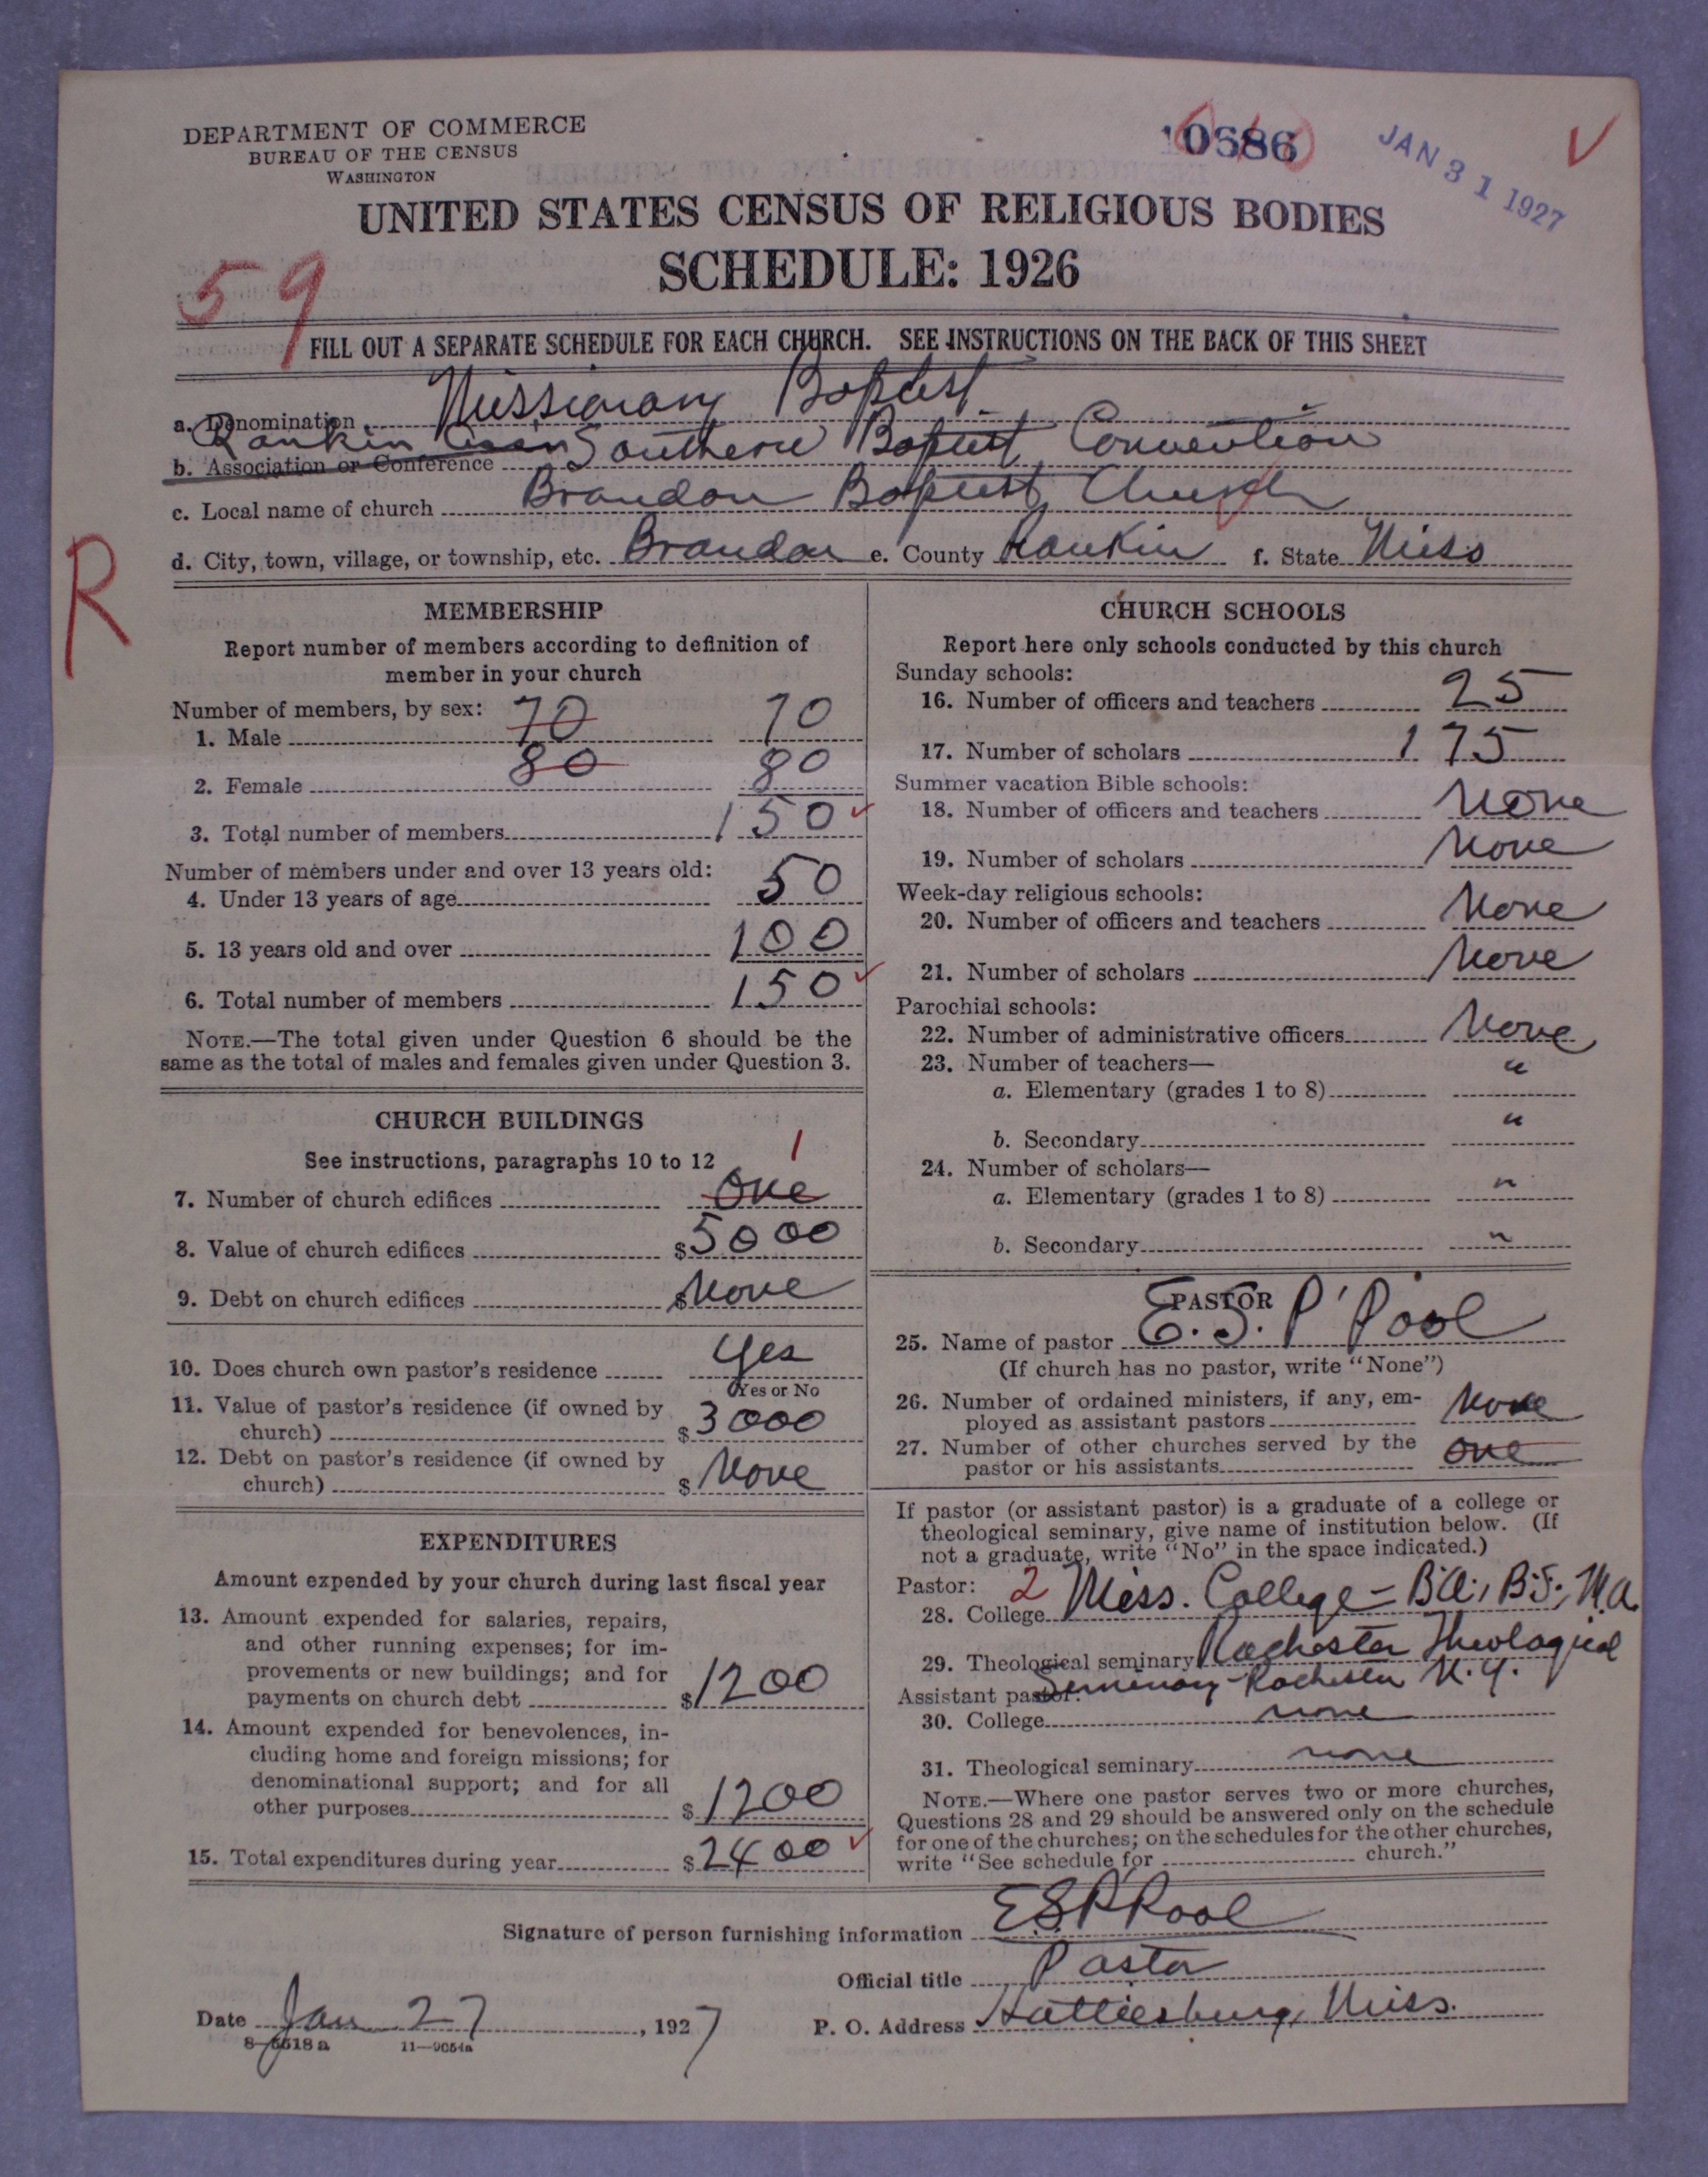 DEPARTMENT OF COMMERCE
BUREAU OF THE CENSUS
WASHINGTON
10686
JAN 31 1927
UNITED STATES CENSUS OF RELIGIOUS BODIES
SCHEDULE: 1926
59
FILL OUT A SEPARATE SCHEDULE FOR EACH CHURCH. SEE INSTRUCTIONS ON THE BACK OF THIS SHEET
a. Denomination Missionary Baptist
Rankin Ass'n
b. Association or Conference Southern Baptist Convention
c. Local name of church Brandon Baptist Church
d. City, town, village, or township, etc. Brandon e. County Rankin f. State Miss
R
MEMBERSHIP
Report number of members according to definition of
member in your church
Number of members, by sex:
1. Male 70 70
2. Female 80 80
3. Total number of members 150
Number of members under and over 13 years old:
4. Under 13 years of age 50
5. 13 years old and over 100
6. Total number of members 150
NOTE.—The total given under Question 6 should be the
same as the total of males and females given under Question 3.
CHURCH BUILDINGS
See instructions, paragraphs 10 to 12
1
7. Number of church edifices One
8. Value of church edifices $5000
9. Debt on church edifices $None
10. Does church own pastor's residence Yes
Yes or No
11. Value of pastor's residence (if owned by
church) $3000
12. Debt on pastor's residence (if owned by
church) $None
EXPENDITURES
Amount expended by your church during last fiscal year
13. Amount expended for salaries, repairs,
and other running expenses; for im-
provements or new buildings; and for
payments on church debt $1200
14. Amount expended for benevolences, in-
cluding home and foreign missions; for
denominational support; and for all
other purposes $1200
15. Total expenditures during year $2400
CHURCH SCHOOLS
Report here only schools conducted by this church
Sunday schools:
16. Number of officers and teachers 25
17. Number of scholars 175
Summer vacation Bible schools:
18. Number of officers and teachers None
19. Number of scholars None
Week-day religious schools:
20. Number of officers and teachers None
21. Number of scholars None
Parochial schools:
22. Number of administrative officers None
23. Number of teachers—
a. Elementary (grades 1 to 8) "
b. Secondary "
24. Number of scholars—
a. Elementary (grades 1 to 8) "
b. Secondary "
PASTOR
25. Name of pastor E. S. P'Pool
(If church has no pastor, write "None")
26. Number of ordained ministers, if any, em-
ployed as assistant pastors None
27. Number of other churches served by the
pastor or his assistants one
If pastor (or assistant pastor) is a graduate of a college or
theological seminary, give name of institution below. (If
not a graduate, write "No" in the space indicated.)
Pastor: 2
28. College Miss. College - B.A., B.S., M.A.
29. Theological seminary Rochester Theological
Seminary Rochester N.Y.
Assistant pastor:
30. College none
31. Theological seminary none
NOTE.—Where one pastor serves two or more churches,
Questions 28 and 29 should be answered only on the schedule
for one of the churches; on the schedules for the other churches,
write "See schedule for church."
Signature of person furnishing information E S P'Pool
Official title Pastor
Date Jan 27, 1927 P. O. Address Hattiesburg, Miss.
8-5518a 11—9054a